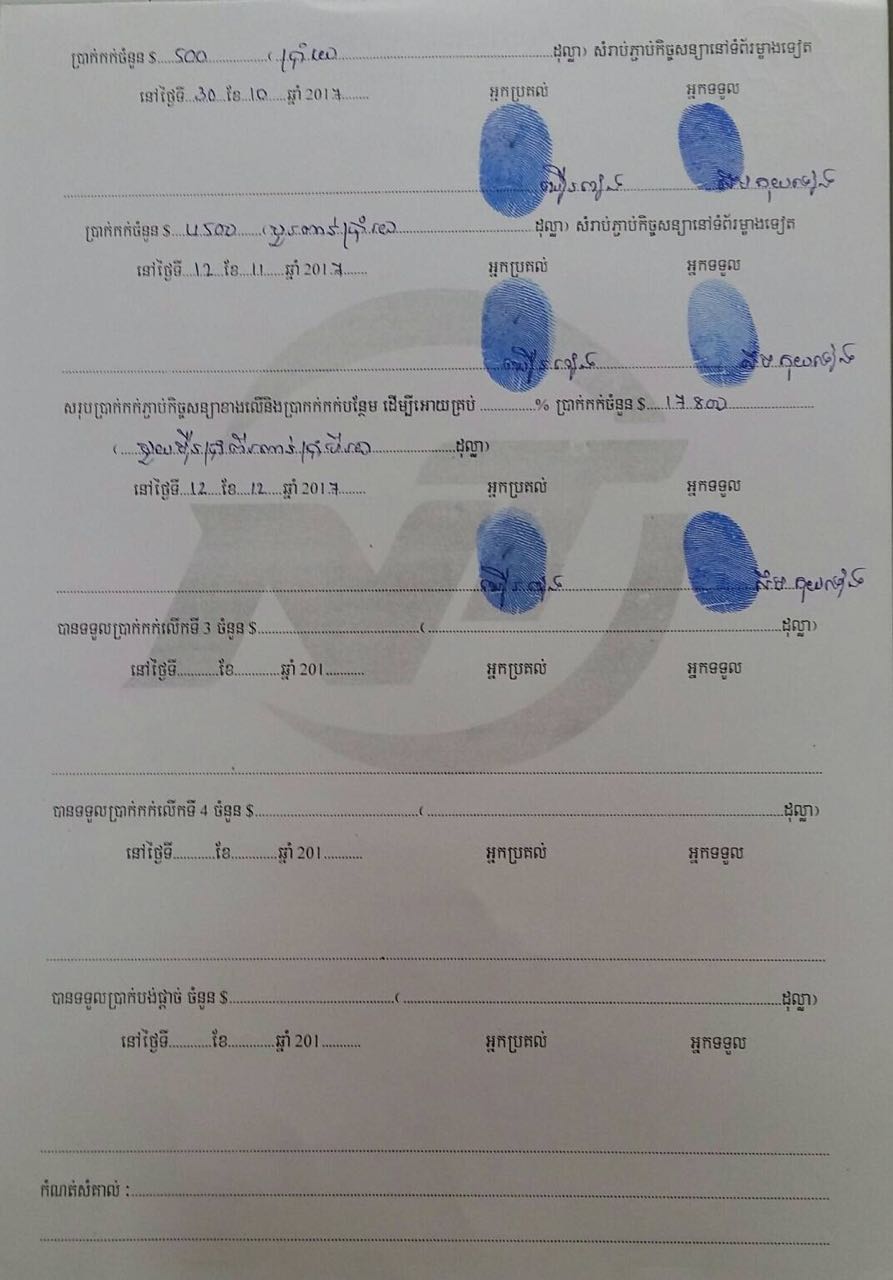 ប្រាក់កក់ចំនួន $....500................( ប្រាំរយ ................................................ដុល្លា) សំរាប់ភ្ជាប់កិច្ចសន្យានៅទំព័រម្ខាងទៀត
នៅថ្ងៃទី...30...ខែ...10.....ឆ្នាំ 2017....... អ្នកប្រគល់ អ្នកទទួល
ប្រាក់កក់ចំនួន $....4500.......(បួនពាន់ប្រាំរយ................................ដុល្លា) សំរាប់ភ្ជាប់កិច្ចសន្យានៅទំព័រម្ខាងទៀត
នៅថ្ងៃទី...12...ខែ...11.....ឆ្នាំ 2017....... អ្នកប្រគល់ អ្នកទទួល
សរុបប្រាក់កក់ភ្ជាប់កិច្ចសន្យាខាងលើនិងប្រាកក់កក់បន្ថែម ដើម្បីអោយគ្រប់ ..............% ប្រាក់កក់ចំនួន $.....17800......................
(.....មួយម៉ឺនប្រាំពីរពាន់ប្រាំបីរយ......................ដុល្លា)
នៅថ្ងៃទី...12....ខែ...12....ឆ្នាំ 2017....... អ្នកប្រគល់ អ្នកទទួល
បានទទួលប្រាក់កក់លើកទី 3 ចំនួន $.......................................( ........................................................................................ដុល្លា)
នៅថ្ងៃទី...........ខែ............ឆ្នាំ 201.......... អ្នកប្រគល់ អ្នកទទួល
បានទទួលប្រាក់កក់លើកទី 4 ចំនួន $.......................................( ........................................................................................ដុល្លា)
នៅថ្ងៃទី...........ខែ............ឆ្នាំ 201.......... អ្នកប្រគល់ អ្នកទទួល
បានទទួលប្រាក់បង់ផ្តាច់ ចំនួន $.......................................( ........................................................................................ដុល្លា)
នៅថ្ងៃទី...........ខែ............ឆ្នាំ 201.......... អ្នកប្រគល់ អ្នកទទួល
កំណត់សំគាល់ :........................................................................